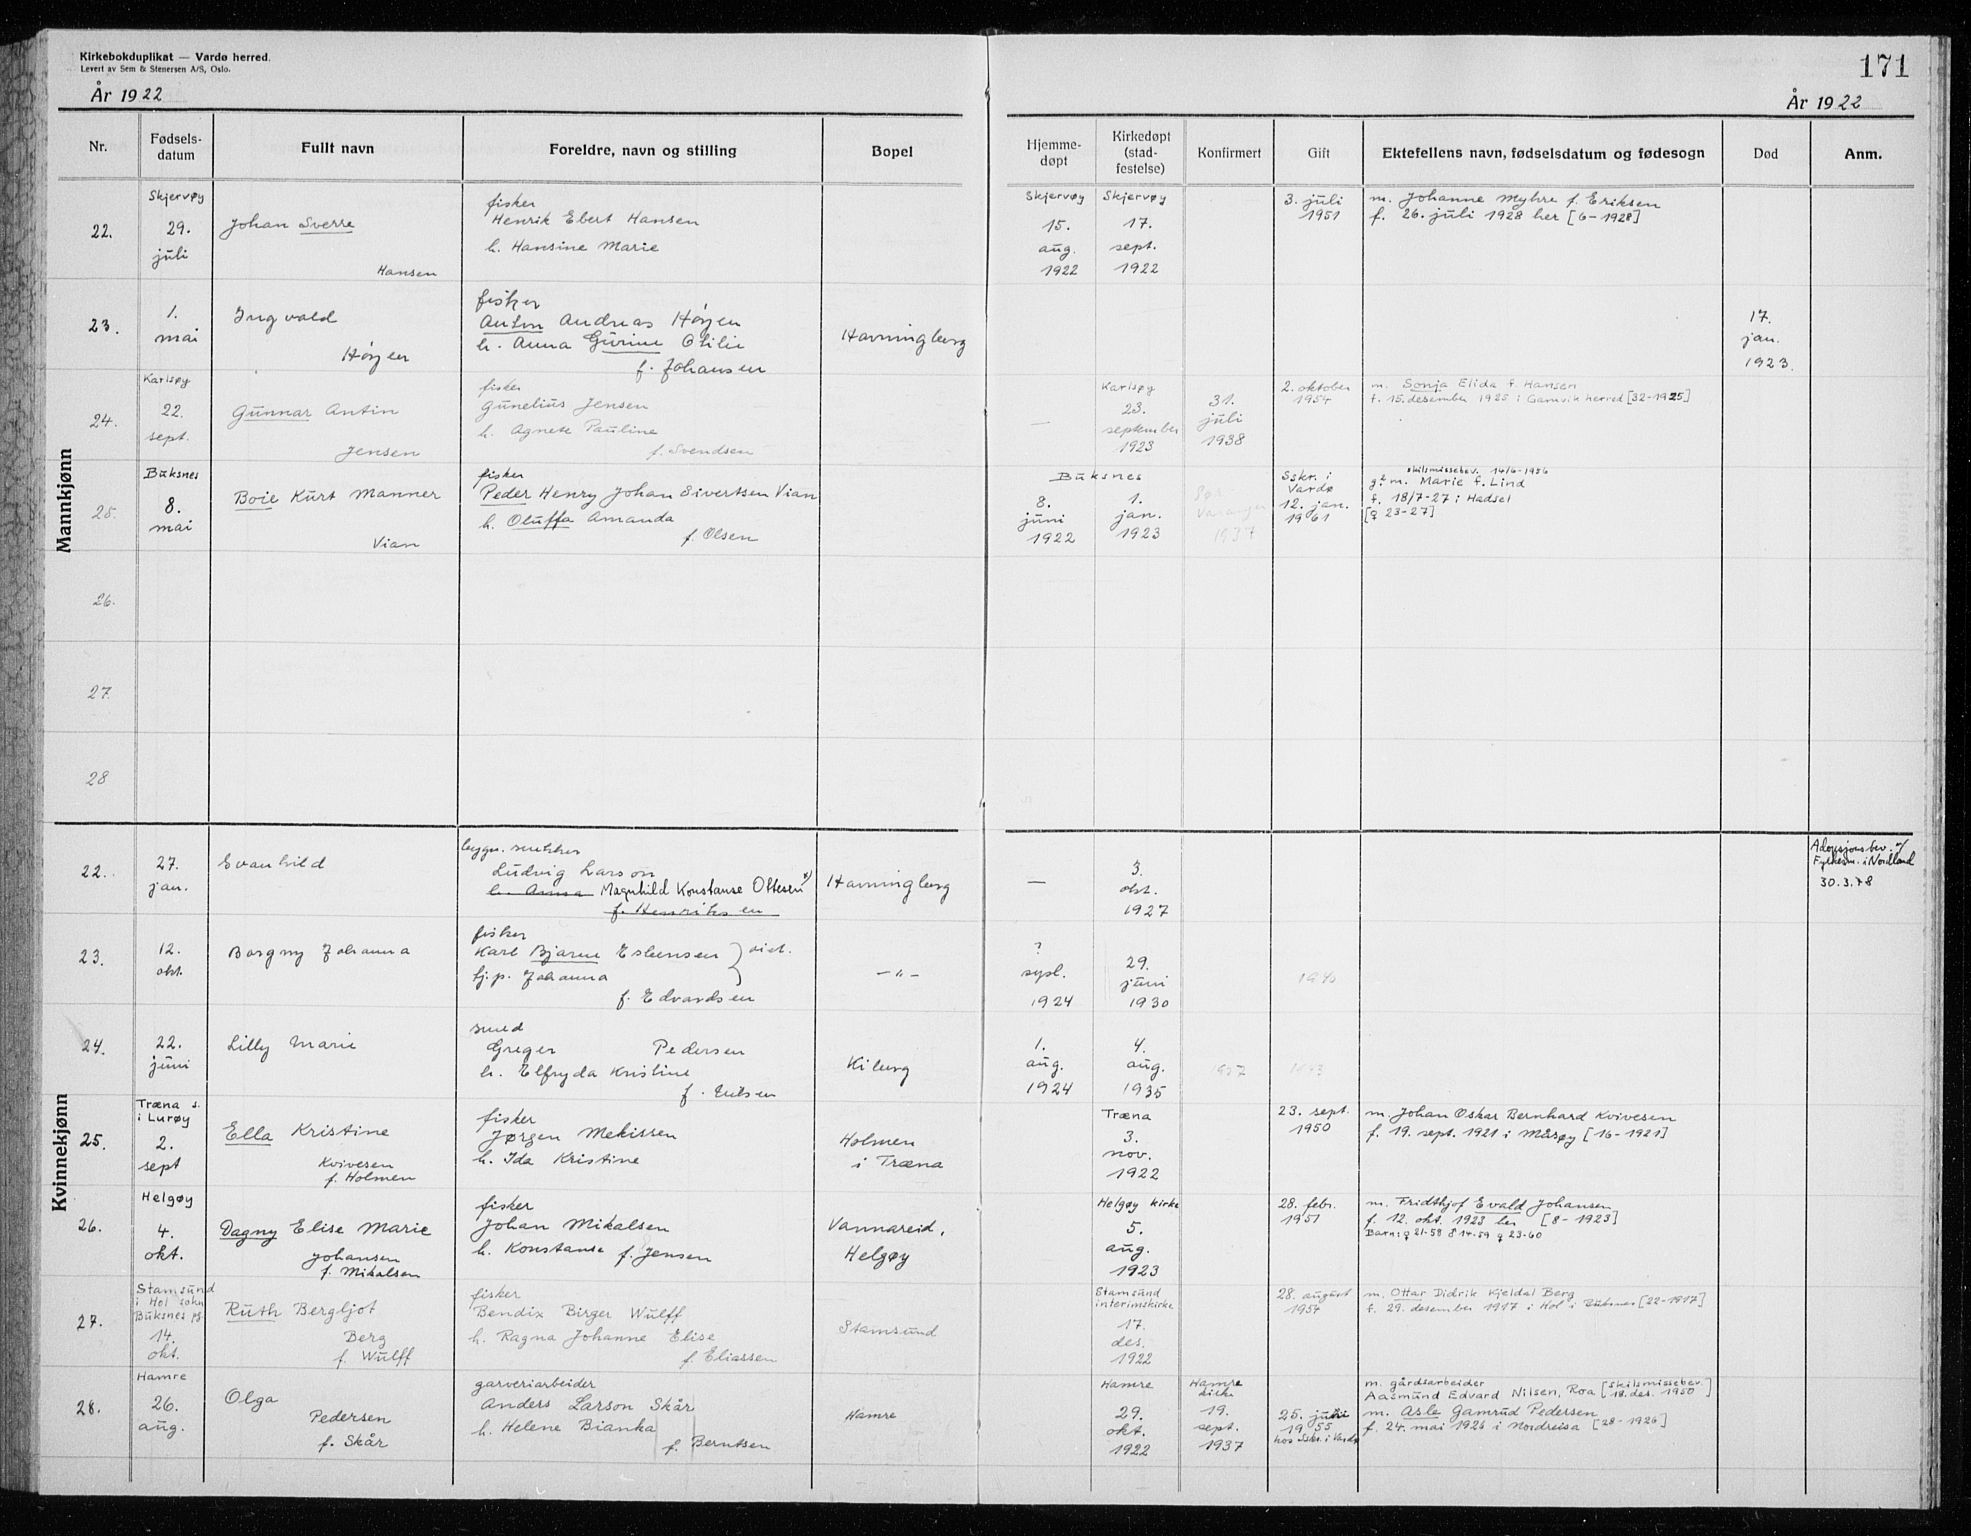 Kirkebokduplikat — Vardø herred.
Levert av Sem & Stenersen A/S, Oslo.
År 1922
171
År 1922
Nr. Fødselsdatum Fullt navn Foreldre, navn og stilling Bopel Hjemmedøpt Kirkedøpt (stadfestelse) Konfirmert Gift Ektefellens navn, fødselsdatum og fødesogn Død Anm.
Mannkjønn
22.
Skjervøy
29.
juli
Johan Sverre
Hansen
fisker
Henrik Ebert Hansen
h. Hansine Marie
Skjervøy
15.
aug.
1922
Skjervøy
17.
sept.
1922
3. juli
1951
m. Johanne Myhre f. Eriksen
f. 26. juli 1928 her [6-1928]
23.
1.
mai
Ingvald
Høyer
fisker
Anton Andreas Høyen
h. Anna Gurine Otilie
f. Johansen
Havningberg
17.
jan.
1923.
24.
Karlsøy
22.
sept.
Gunnar Antin
Jensen
fisker
Gunelius Jensen
h. Agnete Pauline
f. Svendsen
—
Karlsøy
23.
september
1923
31.
juli
1938
2. oktober
1954
m. Sonja Elida f. Hansen
f. 15. desember 1925 i Gamvik herred [32-1925]
25.
Buksnes
8.
mai
Boie Kurt Manner
Vian
fisker
Peder Henry Johan Sivertsen Vian
h. Oluffa Amanda
f. Olsen
Buksnes
8.
juni
1922
1.
jan.
1923
Sør-
Varanger
1937
Sskr. i
Vardø
12. jan.
1961
skilsmissebev. 14/6-1956
g² m. Marie f. Lind
f. 18/7-27 i Hadsel
[♀ 23-27]
26.
27.
28
Kvinnekjønn
22.
27.
jan.
Svanhild
bygn. snekker
Ludvig Larson
h. Anna Magnhild Konstanse Ottesen x)
f. Henriksen
Havningberg
—
3.
okt.
1927
Adopsjonsbev. x/
Fylkesm. i Nordland
30.3.78
23.
12.
okt.
Borgny Johanna
fisker
Karl Bjarne Esbensen
hj.p. Johanna
f. Edvardsen
-"-
?
1924
29.
juni
1930
24.
22.
juni
Lilly Marie
smed
Greger Pedersen
h. Elfryda Kristine
Kiberg
1.
aug.
1924
4.
aug.
1935
1937
1943
25.
Træna s.
i Lurøy
2.
sept
Ella Kristine
Kvivesen
f. Holmen
fisker
Jørgen Mekissen
h. Ida Kristine
Holmen
i Træna
Træna
3.
nov.
1922
23. sept.
1950
m. Johan Oskar Bernhard Kvivesen
f. 19. sept. 1921 i Måsøy [16-1921]
26.
Helgøy
4.
okt.
Dagny Elise Marie
Johansen
f. Mikalsen
fisker
Johan Mikalsen
h. Konstanse f. Jensen
Vannareid,
Helgøy
Helgøy kirke
5.
aug.
1923
28. febr.
1951
m. Fridthjof Evald Johansen
f. 12. okt. 1923 her [8-1923]
Barn: ♀ 21-58 ♂ 14-59 ♀ 23-60
27.
Stamsund
i Hol sokn
Buksnes pg
14.
okt.
Ruth Bergljot
Berg
f. Wulff
fisker
Bendix Birger Wulff
h. Ragna Johanne Elise
f. Eliassen
Stamsund
Stamsund
interimskirke
17.
des.
1922
28. august
1954
m. Ottar Didrik Kjeldal Berg
f. 29. desember 1917 i Hol i Buksnes [22-1917]
28.
Hamre
26.
aug.
Olga
Pedersen
f. Skår
garveriarbeider
Anders Larson Skår
h. Helene Bianka
f. Berntsen
Hamre
Hamre
29.
okt.
1922
Hamre
kirke
19.
sept.
1937
25. juni
1955
hos Sskr. i Vardø
m. gårdsarbeider
Aasmund Edvard Nilsen, Roa [skilsmissebev. 18. des. 1950]
m. Asle Gamrud Pedersen
f. 24. mai 1926 i Nordreisa [28-1926]